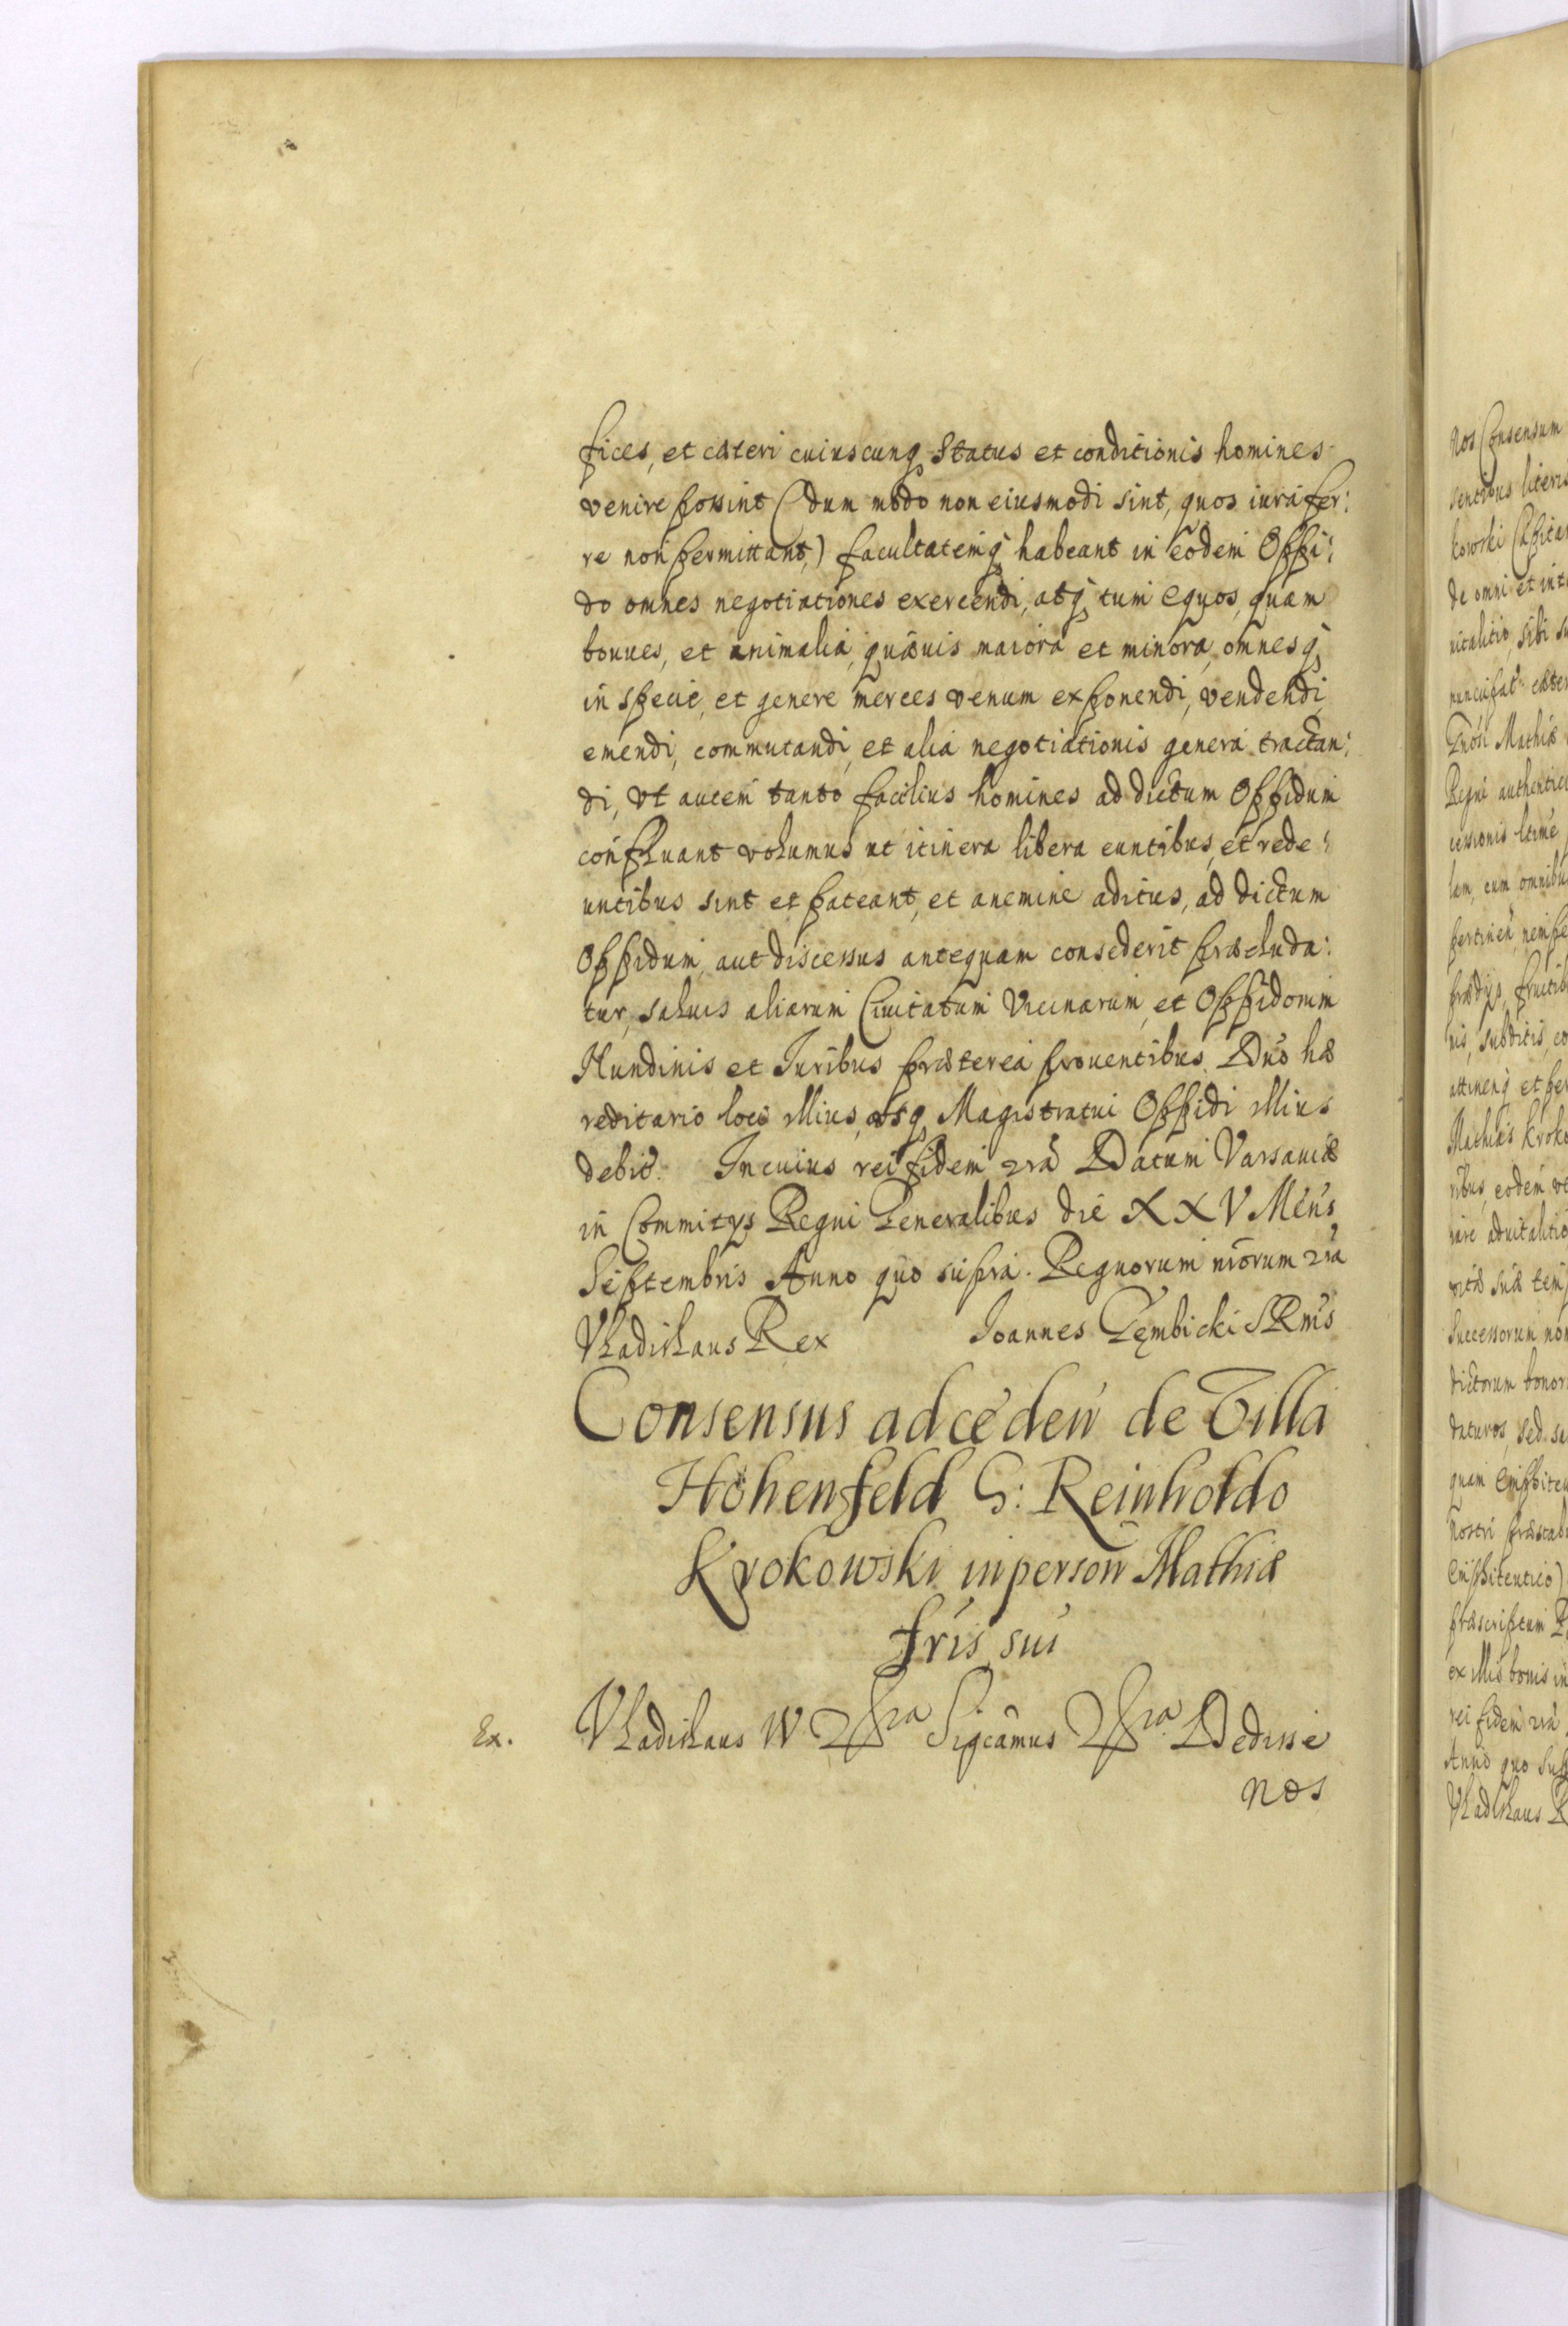 fices, et cæteri cuiuscunq; status et conditionis homines
venire possint (dum modo non eiusmodi sint, quos iura fer:
re non permittant,) facultatemq; habeant in eodem Oppi:
do omnes negotiationes exercendi, atq; tum equos, quam
boues, et animalia, quæuis maiora et minora, omnesq;
in specie, et genere merces venum exponendi, vendendi,
emendi, commutandi, et alia negotiationis genera tractan:
di, Vt autem tanto facilius homines ad dictum Oppidum
confluant volumus ut itinera libera euntibus, et rede:
untibus sint et pateant, et anemine aditus, ad dictum
Oppidum, aut discessus antequam consederit præcluda:
tur, saluis aliarum Ciuitatum Vicinarum, et Oppidorum
Nundinis et Iuribus præterea prouentibus Dno hæ
reditario loci illius, atq; Magistratui Oppidi illius
debit. In cuius rei fidem Datum Varsauiæ
in Commitys Regni Generalibus die XXV Mens
Septembris Anno quo supra. Regnorum nrorum
Vladislaus Rex Ioannes Gembicki SRMs
Consensus ad ceden de Villa
Hohenfeld G: Reinholdo
Krokowski in person Mathiæ
fris sui
Ex. Vladislaus IV Sigcamus Dedisse
nos
nos Consensum
sentibus literis
kowski Capitan
de omni et int
uitalitio, sibi su
Mathiæ
Regni authentic
cessionis
lam, cum omnibu
prædys, fructib
nis, subditis, co
attinen et per
Mathiæs Kroko
ribus, eodem
aduitalitio
vitæ suæ tem
Successorum non
dictorum bonor
daturos, sed sa
quam Emphiteu
nostri
Emphiteutico)
præscriptum
ex illis bonis in
rei fidem
Anno quo sup
Vladislaus R